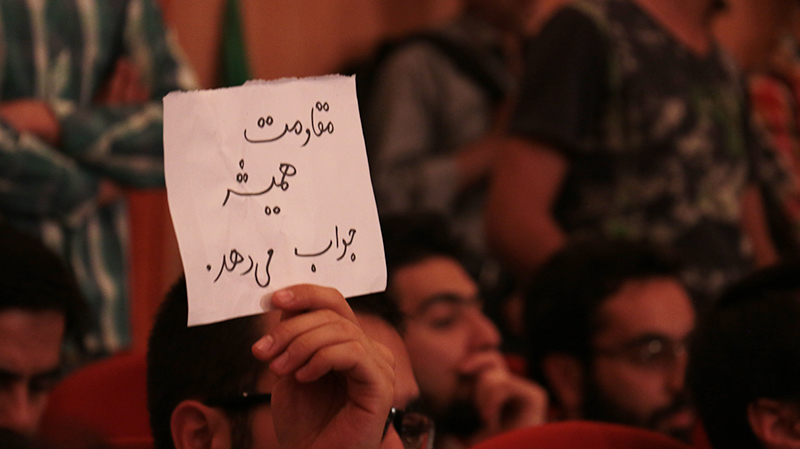 مقاومت
همیشه
جواب می‌دهد.